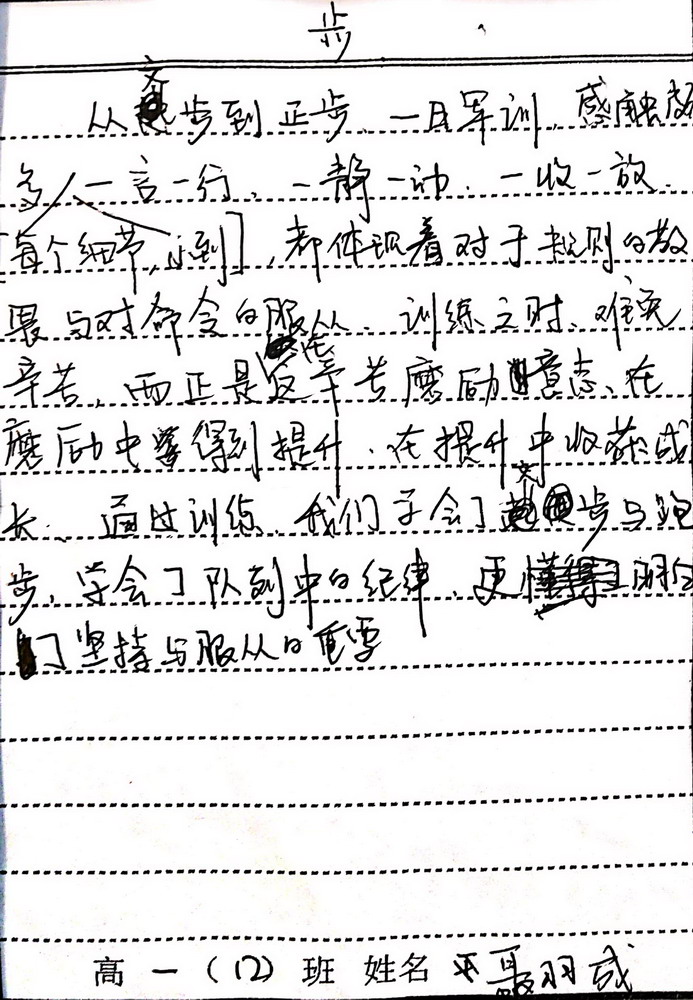 步
从文步到正步，一日军训，感触颇
多，一言一行，一静一动，一收一放，
每个细节，小到，都体现着对于规则的敬
畏与对命令的服从，训练之时，难免
辛苦，而正是在辛苦磨励意志，在
磨励中得到提升，在提升中收获成
长，通过训练，我们学会了文步与跑
步，学会了队列中的纪律，更明白
了坚持与服从的重要
高一（12）班 姓名 羽成